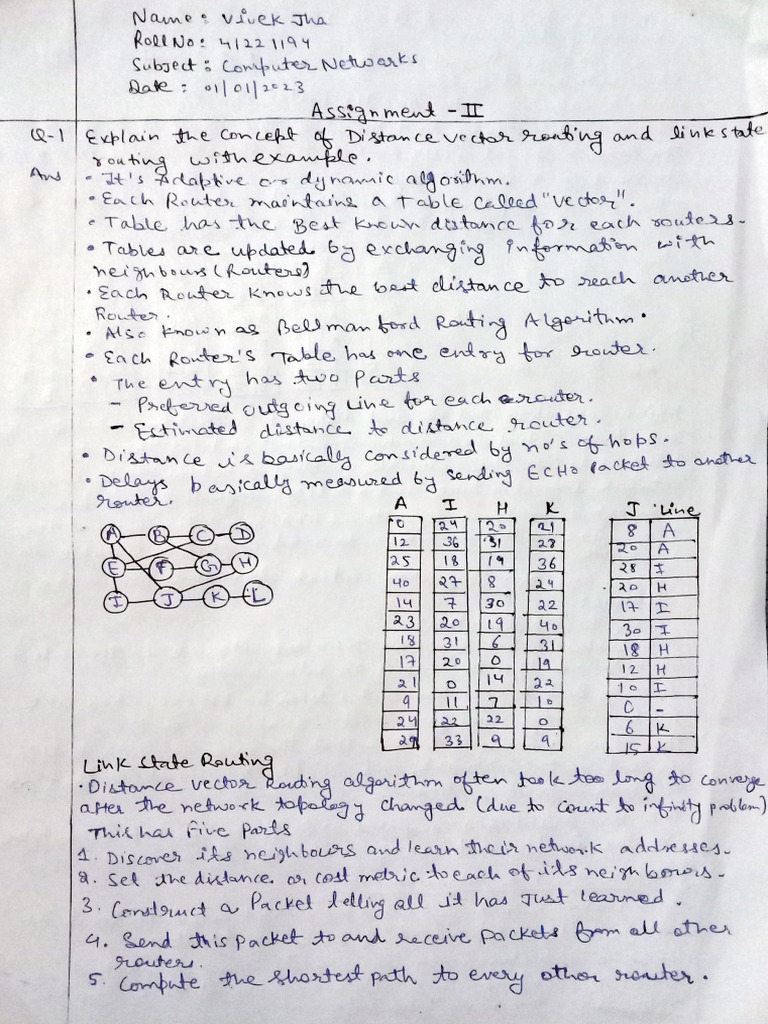 Name: Vivek Jha
Roll No: 41221194
Subject: Computer Networks
Date: 01/01/2023
Assignment - II
Q-1 Explain the concept of Distance vector routing and link state
routing with example.
Ans • It's Adaptive or dynamic algorithm.
• Each Router maintains a Table called "Vector".
• Table has the Best known distance for each routers.
• Tables are updated by exchanging information with
neighbours (Routers)
• Each Router knows the best distance to reach another
Router.
• Also known as Bellman ford Routing Algorithm.
• Each Router's Table has one entry for router.
• The entry has two Parts
- Preferred outgoing Line for each router.
- Estimated distance to distance router.
• Distance is basically considered by no's of hops.
• Delays basically measured by sending ECHO Packet to another
router.
A B C D
E F G H
I J K L
A I H K J Line
0 24 20 21 8 A
12 36 31 28 20 A
25 18 19 36 28 I
40 27 8 24 20 H
14 7 30 22 17 I
23 20 19 40 30 I
18 31 6 31 18 H
17 20 0 19 12 H
21 0 14 22 10 I
9 11 7 10 0 -
24 22 22 0 6 K
29 33 9 9 15 K
Link State Routing
• Distance vector Routing algorithm often took too long to converge
after the network topology changed (due to count to infinity problem)
This has Five Parts
1. Discover its neighbours and learn their network addresses.
2. Set the distance or cost metric to each of its neighbours.
3. Construct a Packet telling all it has Just learned.
4. Send this packet to and receive packets from all other
routers.
5. Compute the shortest path to every other router.